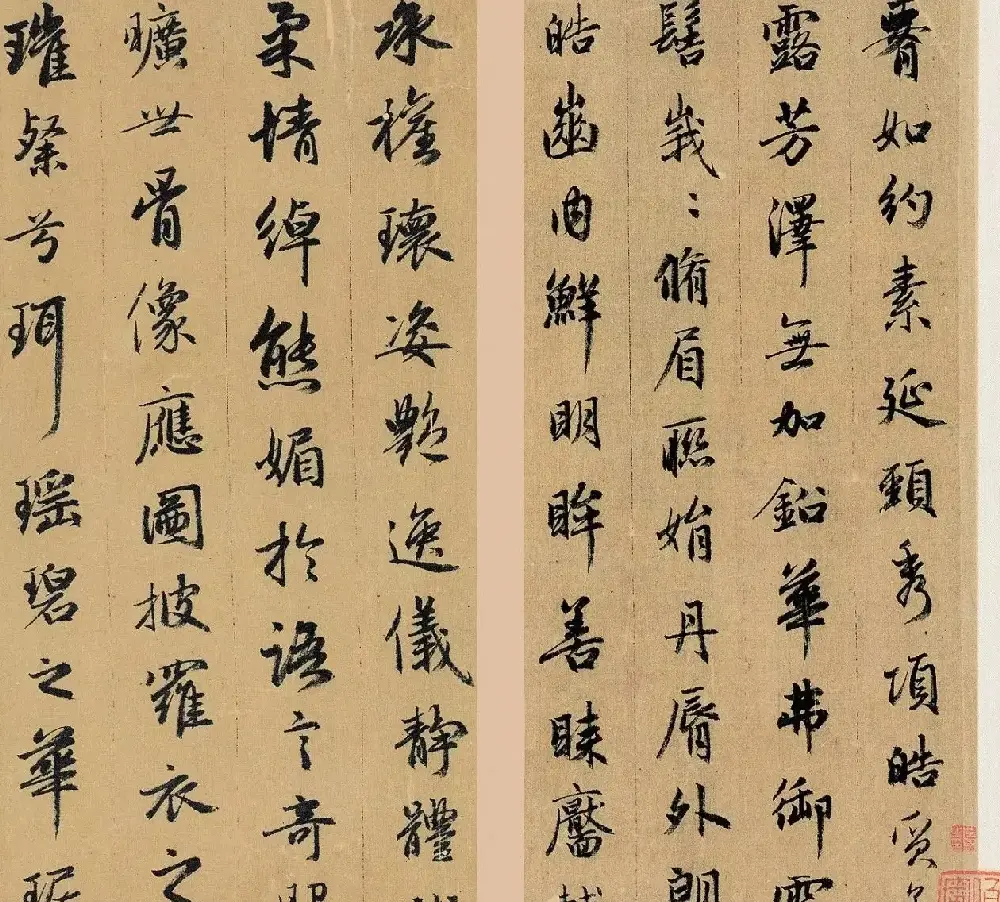 腰如約素延頸秀項皓質
露芳澤無加鉛華弗御雲
髻峩〻脩眉聯娟丹脣外朗
皓齒內鮮明眸善睞靨輔
承權瓌姿艷逸儀靜體
柔情綽態媚於語言奇服
曠世骨像應圖披羅衣之
璀粲兮珥瑤碧之華琚